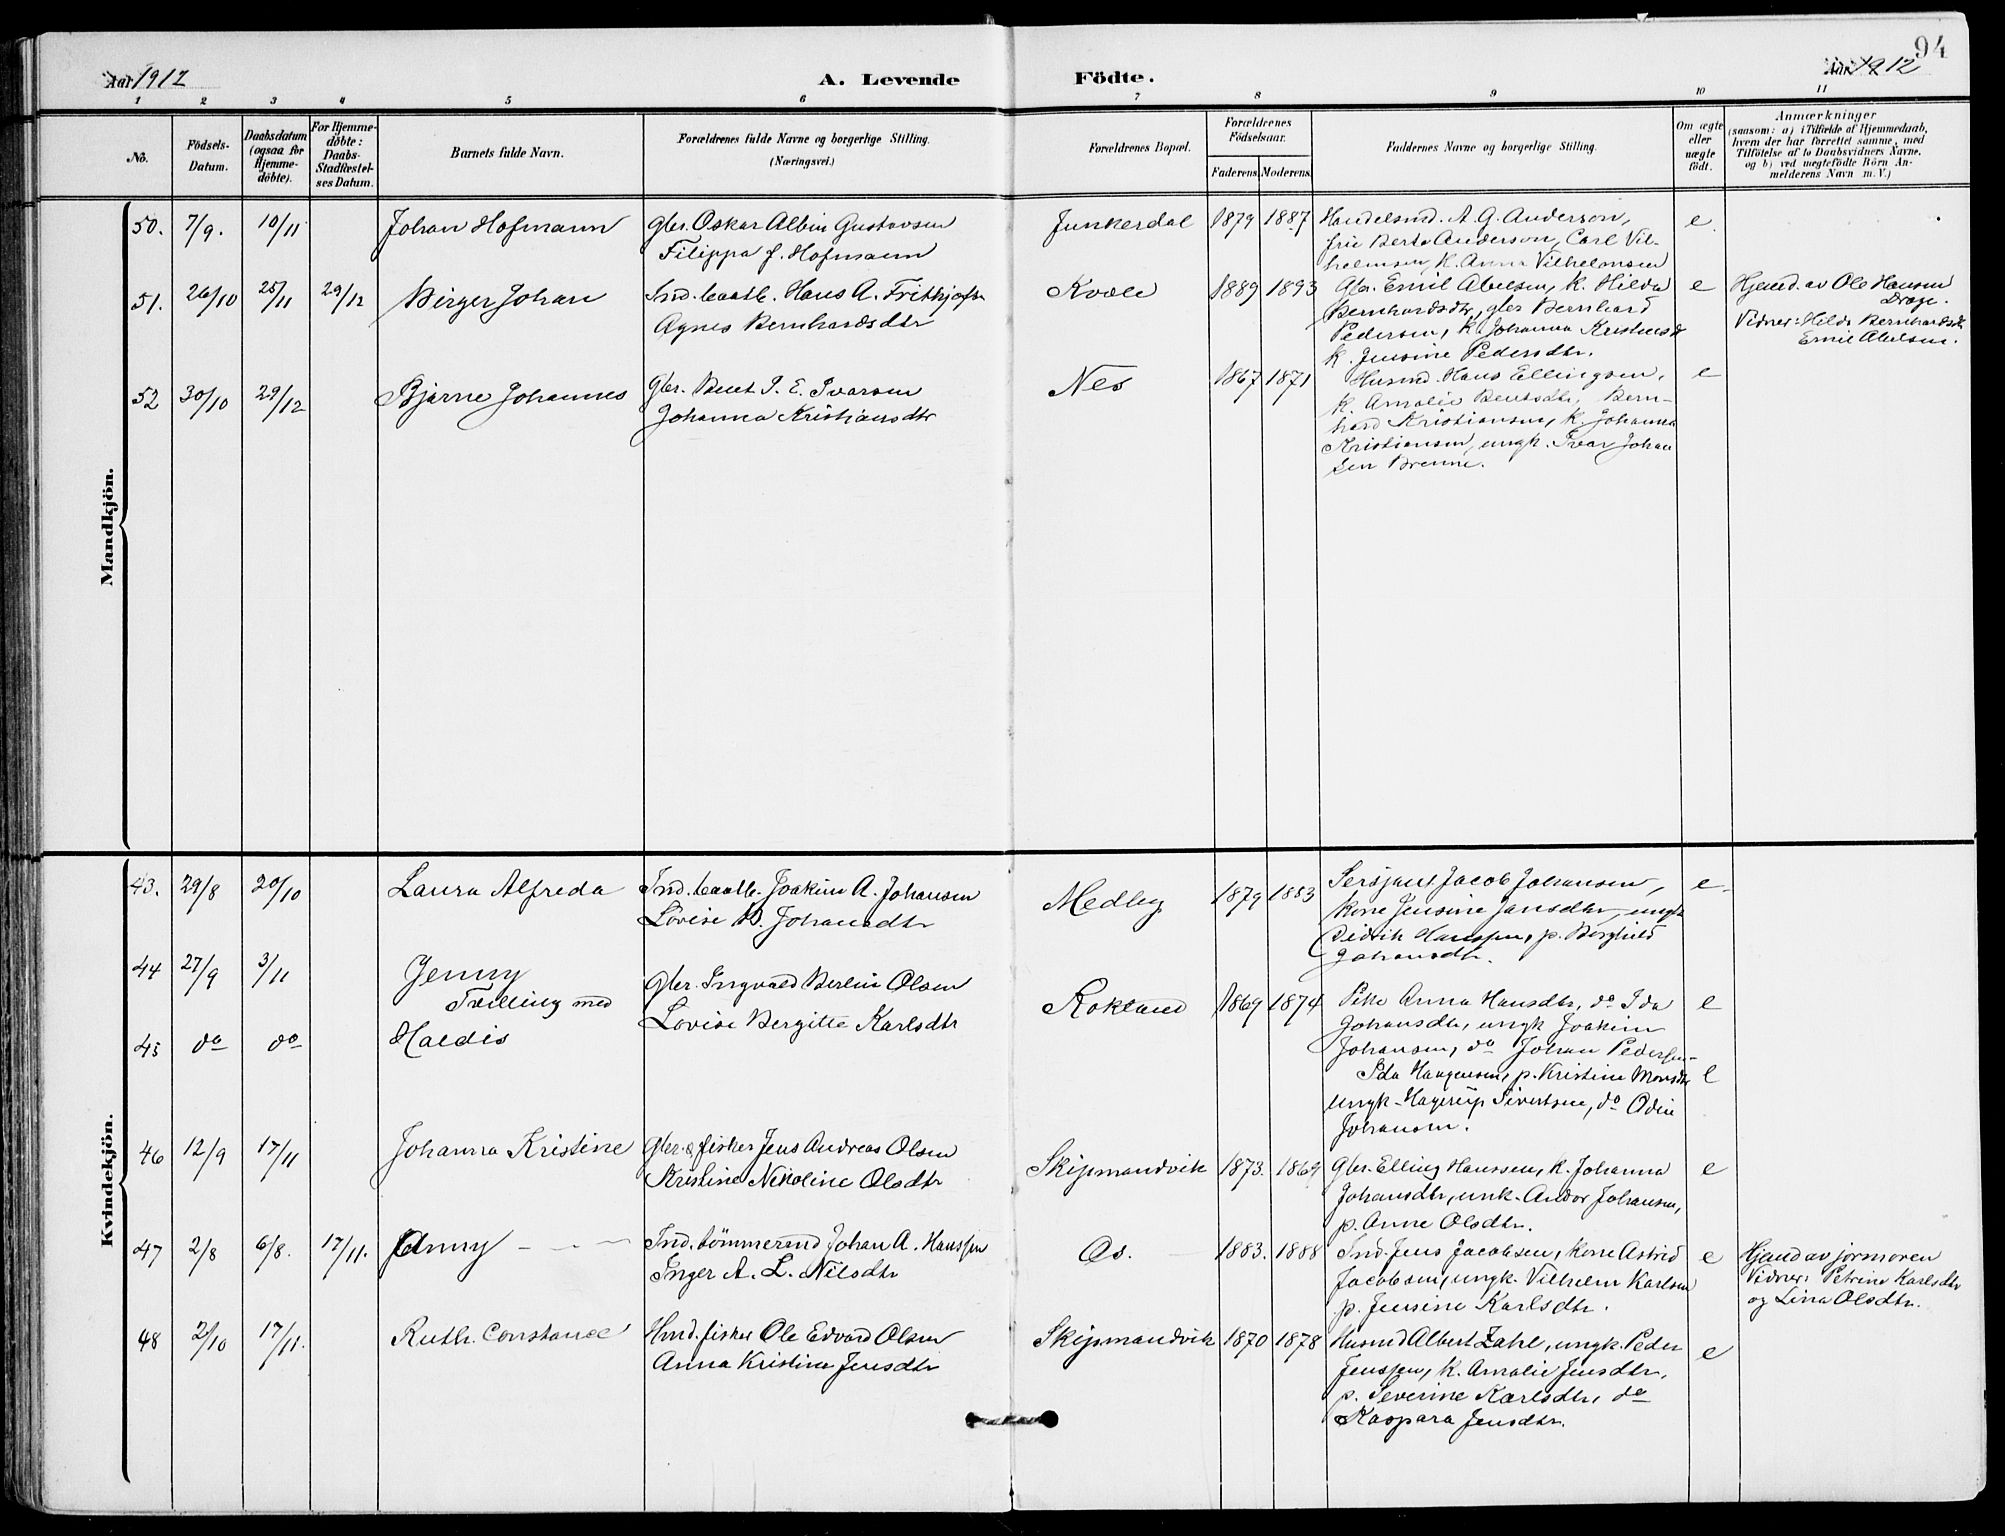 94
Aar 1912
A. Levende Födte.
Aar 1912
1 2 3 4 5 6 7 8 9 10 11
No.
Födsels-Datum.
Daabsdatum (ogsaa for Hjemme-döbte).
For Hjemme-döbte: Daabs-Stadfæstel-ses Datum.
Barnets fulde Navn.
Forældrenes fulde Navne og borgerlige Stilling. (Næringsvei.)
Forældrenes Bopæl.
Forældrenes Födselsaar.
Faderens. Moderens.
Faddernes Navne og borgerlige Stilling.
Om ægte eller uægte födt.
Anmærkninger
(saasom: a) i Tilfælde af Hjemmedaab,
hvem der har forrettet samme, med
Tilföielse af to Daabsvidners Navne.
og b) ved uægtefödte Börn An-
melderens Navn m. V.)
Mandkjön.
50. 7/9. 10/11 Johan Hofmann
Gbr. Oskar Albin Gustavsen
Filippa f. Hofmann
Junkerdal 1879 1887
Handelsmd. A. G. Anderson,
frie Berta Anderson, Carl Vil-
helmsen, k. Anna Vilhelmsen
e.
51. 26/10 25/11 29/12 Birger Johan
Ind. Hans A. Frithjofsen
Agnes Bernhardsdtr
Kvæle 1889 1893
Gbr. Emil Abelsen, k. Hilda
Bernhardsdtr, gbr Bernhard
Pedersen, k. Johanna Kristensdtr
k. Jensine Pedersdtr.
e
Hjemd. av Ole Hansen
Drage.
Vidner: Hilda Bernhardsdtr
Emil Abelsen.
52 30/10 29/12 Bjarne Johannes
Gbr. Bent J. E. Ivarsen
Johanna Kristiansdtr
Nes 1867 1871
Husmd. Hans Ellingsen,
k. Amalie Bentsdtr, Bern-
hard Kristiansen, k. Johanna
Kristiansen, ungk. Ivar Johan
sen Brenne.
e
Kvindekjön.
43. 29/8 20/10 Laura Alfreda
Ind. Joakim A. Johansen
Lovise B. Johansdtr
Medby 1879 1883
Sersjant Jacob Johansen,
kone Jensine Jansdtr, ungk
Didrik Hanssen, p. Borghild
Johansdtr.
e.
44 27/9 3/11 Jenny
Tvilling med
Gbr. Ingvald Berlin Olsen
Lovise Bergitte Karlsdtr
Rokland 1869 1874
Pike Anna Hansdtr, do Ida
Johansdtr, ungk Joakim
Johansen, do Johan Pedersen
e
45 do do Haldis
Ida Haagensen, p. Kristine Monsdtr
ungk. Hagerup Sivertsen, do Odin
Johansen.
e
46 12/9 17/11 Johanna Kristine
Gbr. & fisker Jens Andreas Olsen
Kristine Nikoline Olsdtr
Skipmandvik 1873. 1869
Gbr. Elling Hanssen, k. Johanna
Johansdtr, unk. Andor Johansen,
p. Anne Olsdtr.
e
47 2/8 6/8. 17/11. Anny
Ind. tömmermd Johan A. Hanssen
Inger A. L. Nilsdtr
Os. 1883. 1888
Ind. Jens Jacobsen, kone Astrid
Jacobsen, ungk. Vilhelm Karlsen
p. Jensine Karlsdtr.
e
Hjemd av jormoren
Vidner: Petrine Karlsdtr
og Lina Olsdtr.
48 2/10 17/11. Ruth Constance
Hmd. fisker Ole Edvard Olsen
Anna Kristina Jensdtr
Skipmandvik 1870 1878
Husmd Albert Zahl, ungk. Peder
Jenssen, k. Amalie Jensdtr,
p. Severine Karlsdtr, do
Kaspara Jensdtr.
e